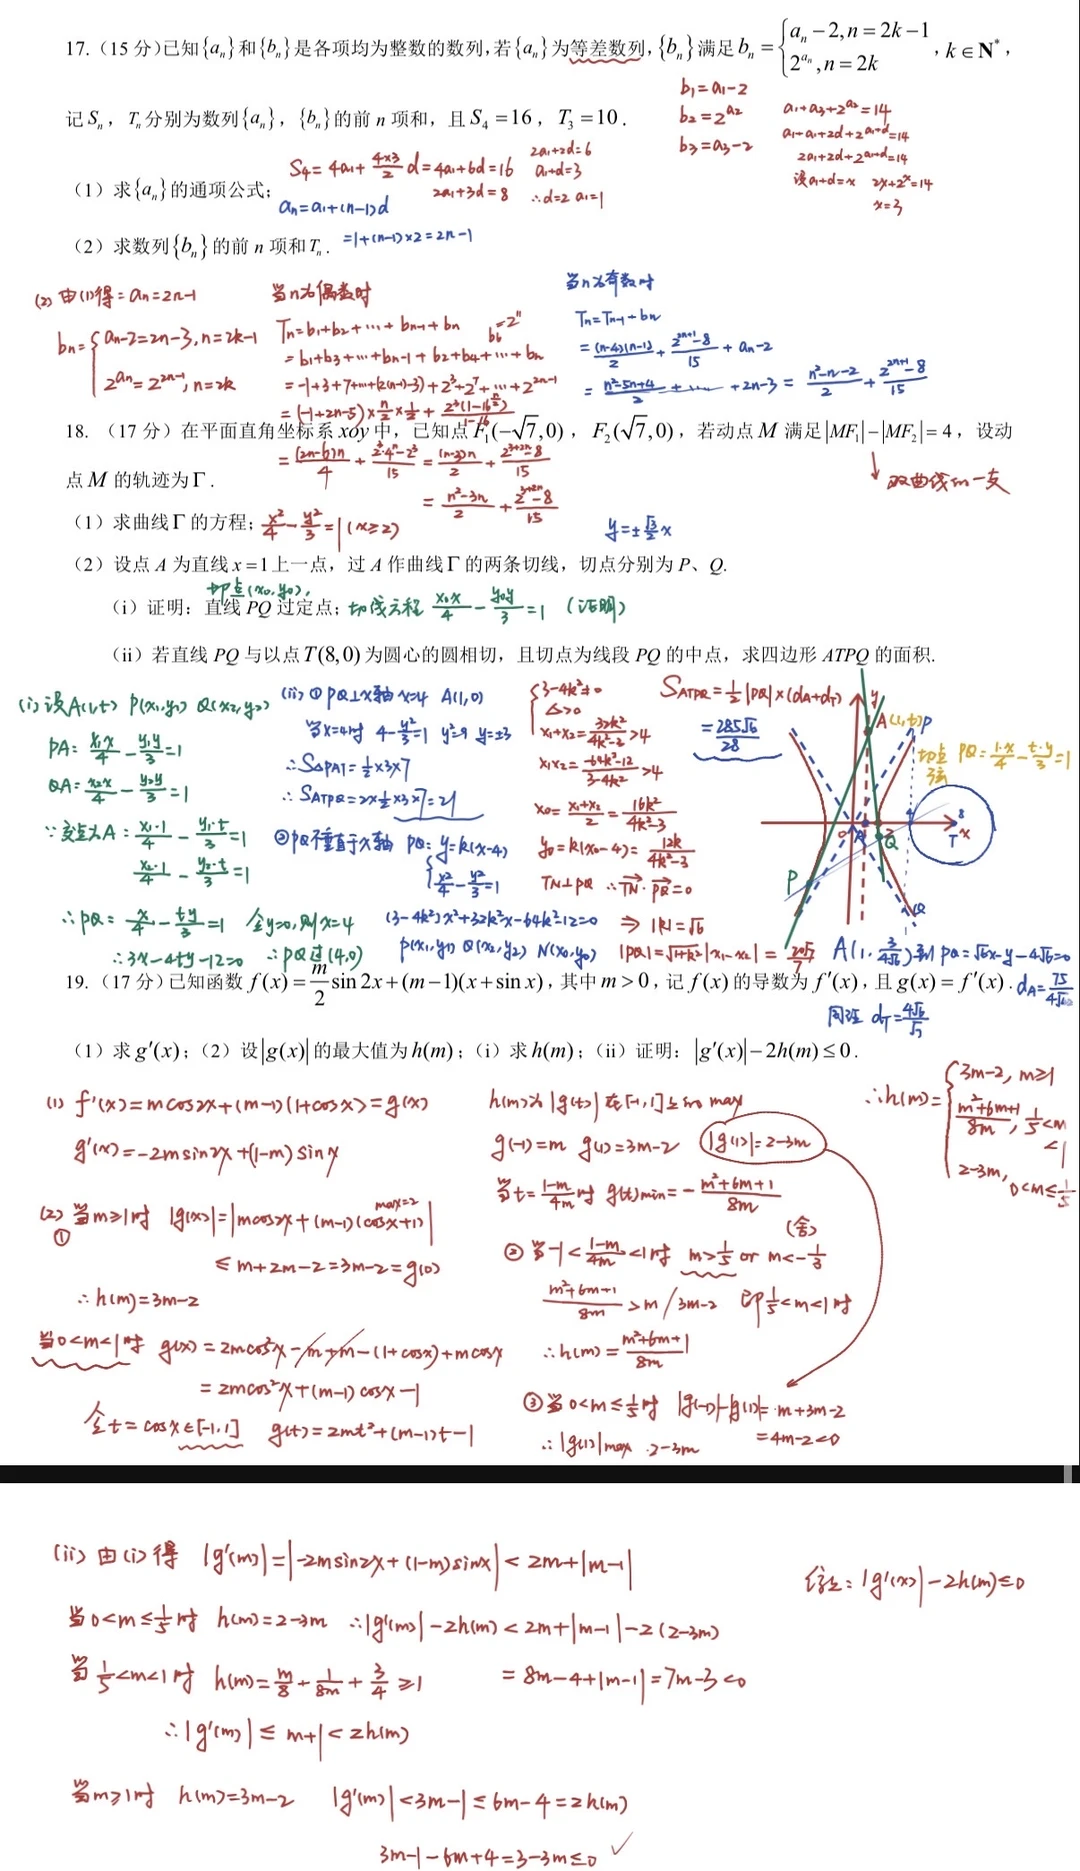 17.（15分)已知{aₙ}和{bₙ}是各项均为整数的数列,若{aₙ}为等差数列,{bₙ}满足bₙ = { aₙ−2, n=2k−1 ; 2^{aₙ}, n=2k , k∈N*,
b₁=a₁-2
b₂=2^{a₂}
b₃=a₃-2
a₁+a₃+2^{a₂}=14
a₁+a₁+2d+2^{a₁+d}=14
2a₁+2d+2^{a₁+d}=14
设a₁+d=x 2x+2^x=14
x=3
记Sₙ，Tₙ分别为数列{aₙ}，{bₙ}的前n项和，且S₄=16，T₃=10.
（1）求{aₙ}的通项公式;
S₄=4a₁+\frac{4×3}{2}d=4a₁+6d=16
2a₁+3d=8
2a₁+2d=6
a₁+d=3
∴d=2 a₁=1
aₙ=a₁+(n-1)d
=1+(n-1)×2=2n-1
（2）求数列{bₙ}的前n项和Tₙ.
(2) 由(1)得=aₙ=2n-1
bₙ={ aₙ-2=2n-3, n=2k-1
2^{aₙ}=2^{2n-1}, n=2k
当n为偶数时
Tₙ=b₁+b₂+⋯+bₙ₋₁+bₙ
b₆=2¹¹
=b₁+b₃+⋯+bₙ₋₁+b₂+b₄+⋯+bₙ
=-1+3+7+⋯+(2(n-1)-3)+2³+2⁷+⋯+2^{2n-1}
=(-1+2n-5)×\frac{n}{2}×\frac{1}{2}+\frac{2³(1-16^{\frac{n}{2}})}{1-16}
=\frac{(2n-6)n}{4}+\frac{2³·4ⁿ-2³}{15}=\frac{(n-3)n}{2}+\frac{2^{3+2n}-8}{15}
=\frac{n²-3n}{2}+\frac{2^{3+2n}-8}{15}
当n为奇数时
Tₙ=Tₙ₋₁+bₙ
=\frac{(n-4)(n-1)}{2}+\frac{2^{2n+1}-8}{15}+aₙ-2
=\frac{n²-5n+4}{2}+⋯+2n-3=\frac{n²-n-2}{2}+\frac{2^{2n+1}-8}{15}
18.（17分）在平面直角坐标系xoy中，已知点F₁(−√7,0)，F₂(√7,0)，若动点M满足|MF₁|−|MF₂|=4，设动
点M的轨迹为Γ.
双曲线的一支
（1）求曲线Γ的方程;
\frac{x²}{4}-\frac{y²}{3}=1(x≥2)
y=±\frac{√3}{2}x
（2）设点A为直线x=1上一点，过A作曲线Γ的两条切线，切点分别为P、Q.
切点(x₀,y₀),
（i）证明：直线PQ过定点;
切线方程 \frac{x₀x}{4}-\frac{y₀y}{3}=1 (证明)
（ii）若直线PQ与以点T(8,0)为圆心的圆相切，且切点为线段PQ的中点，求四边形ATPQ的面积.
(i)设A(1,t) P(x₁,y₁) Q(x₂,y₂)
PA: \frac{x₁x}{4}-\frac{y₁y}{3}=1
QA=\frac{x₂x}{4}-\frac{y₂y}{3}=1
∵交点为A: \frac{x₁·1}{4}-\frac{y₁·t}{3}=1
\frac{x₂·1}{4}-\frac{y₂·t}{3}=1
∴PQ=\frac{x}{4}-\frac{ty}{3}=1 令y=0,则x=4
∴3x-4ty-12=0 ∴PQ过(4,0)
(ii) ①PQ⊥x轴 x=4 A(1,0)
当x=4时 4-\frac{y²}{3}=1 y²=9 y=±3
∴S△PAT=½×3×7
∴S_{ATPQ}=2×½×3×7=21
②PQ不垂直于x轴 PQ: y=k(x-4)
\frac{x²}{4}-\frac{y²}{3}=1
(3-4k²)x²+32k²x-64k²-12=0
P(x₁,y₁) Q(x₂,y₂) N(x₀,y₀)
3-4k²≠0
△>0
x₁+x₂=\frac{32k²}{4k²-3}>4
x₁x₂=\frac{-64k²-12}{3-4k²}>4
x₀=\frac{x₁+x₂}{2}=\frac{16k²}{4k²-3}
y₀=k(x₀-4)=\frac{12k}{4k²-3}
TN⊥PQ ∴TN·PQ=0
⇒ |k|=√6
|PQ|=√(1+k²)|x₁-x₂|=\frac{20√7}{7}
A(1,\frac{3}{4√6})到PQ=√6x-y-4√6=0
d_A=\frac{75}{4√42}
同理 d_T=\frac{4√6}{√7}
S_{ATPQ}=½|PQ|×(d_A+d_T)
=\frac{285√6}{28}
y
A(1,t)
P
切点弦 PQ=\frac{1·x}{4}-\frac{t·y}{3}=1
8
T
x
Q
P
Q
19.（17分)已知函数f(x)=\frac{m}{2}sin2x+(m−1)(x+sinx), 其中m>0，记f(x)的导数为f′(x)，且g(x)=f′(x).
（1）求g′(x)；（2）设|g(x)|的最大值为h(m)；（i）求h(m)；（ii）证明：|g′(x)|−2h(m)≤0.
(1) f'(x)=mcos2x+(m-1)(1+cosx)=g(x)
g'(x)=-2msin2x+(1-m)sinx
(2) 当m≥1时 |g(x)|=|mcos2x+(m-1)(cosx+1)|
max=2
①
≤m+2m-2=3m-2=g(0)
∴h(m)=3m-2
当0<m<1时 g(x)=2mcos²x-m+m-(1+cosx)+mcosx
=2mcos²x+(m-1)cosx-1
令t=cosx∈[-1,1] g(t)=2mt²+(m-1)t-1
h(m)为|g(t)|在[-1,1]上的max
g(-1)=m g(1)=3m-2 |g(1)|=2-3m
当t=\frac{1-m}{4m}时 g(t)min=-\frac{m²+6m+1}{8m}
(舍)
②当-1<\frac{1-m}{4m}<1时 m>\frac{1}{5} or m<-\frac{1}{3}
\frac{m²+6m+1}{8m}>m/3m-2 即\frac{1}{5}<m<1时
∴h(m)=\frac{m²+6m+1}{8m}
③当0<m≤\frac{1}{5}时 |g(-1)|-|g(1)|=m+3m-2
=4m-2<0
∴|g(t)|max 2-3m
∴h(m)={ 3m-2, m≥1
\frac{m²+6m+1}{8m}, \frac{1}{5}<m<1
2-3m, 0<m≤\frac{1}{5}
(ii) 由(i)得 |g'(m)|=|-2msin2x+(1-m)sinx|<2m+|m-1|
往证: |g'(x)|-2h(m)≤0
当0<m≤\frac{1}{5}时 h(m)=2-3m ∴|g'(m)|-2h(m)<2m+|m-1|-2(2-3m)
=8m-4+|m-1|=7m-3<0
当\frac{1}{5}<m<1时 h(m)=\frac{m}{8}+\frac{1}{8m}+\frac{3}{4}≥1
∴|g'(m)|≤m+1<2h(m)
当m≥1时 h(m)=3m-2 |g'(m)|<3m-1≤6m-4=2h(m)
3m-1-6m+4=3-3m≤0 ✓